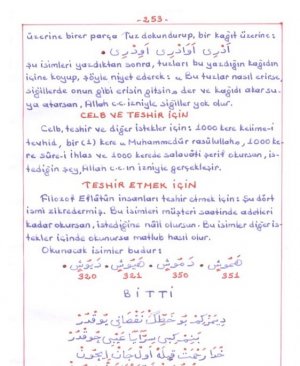 - 253 -
üzerine birer parça Tuz dokundurup, bir kağıt üzerine:
şu isimleri yazdıktan sonra, tuzları bu yazdığın kağıdın
içine koyup, şöyle niyet ederek: « Bu tuzlar nasıl erirse,
siğillerde onun gibi erisin gitsin» der ve kağıdı akar su.
ya atarsan, Allah c.c. izniyle siğiller yok olur.
CELB VE TESHİR İÇİN
Celb, teshir ve diğer istekler için: 1000 kere kelime-i
tevhid, bir (1) kere « Muhammedür rasülullah», 1000 ke
re Sûre-i ihlas ve 1000 kerede salavâti şerif okursan, is-
tediğin şey, Allah c.c. ın izniyle gerçekleşir.
TESHİR ETMEK İÇİN
Filozof Eflâtûn insanları teshir etmek için: şu dört
ismi zikredermiş. Bu isimleri müşteri saatinde adetleri
kadar okursan, istediğine nâil olursun. Bu isimler diğer is-
tekler içinde okunursa matlub hasıl olur.
Okunacak isimler budur:
320 321 350 351
BİTTİ